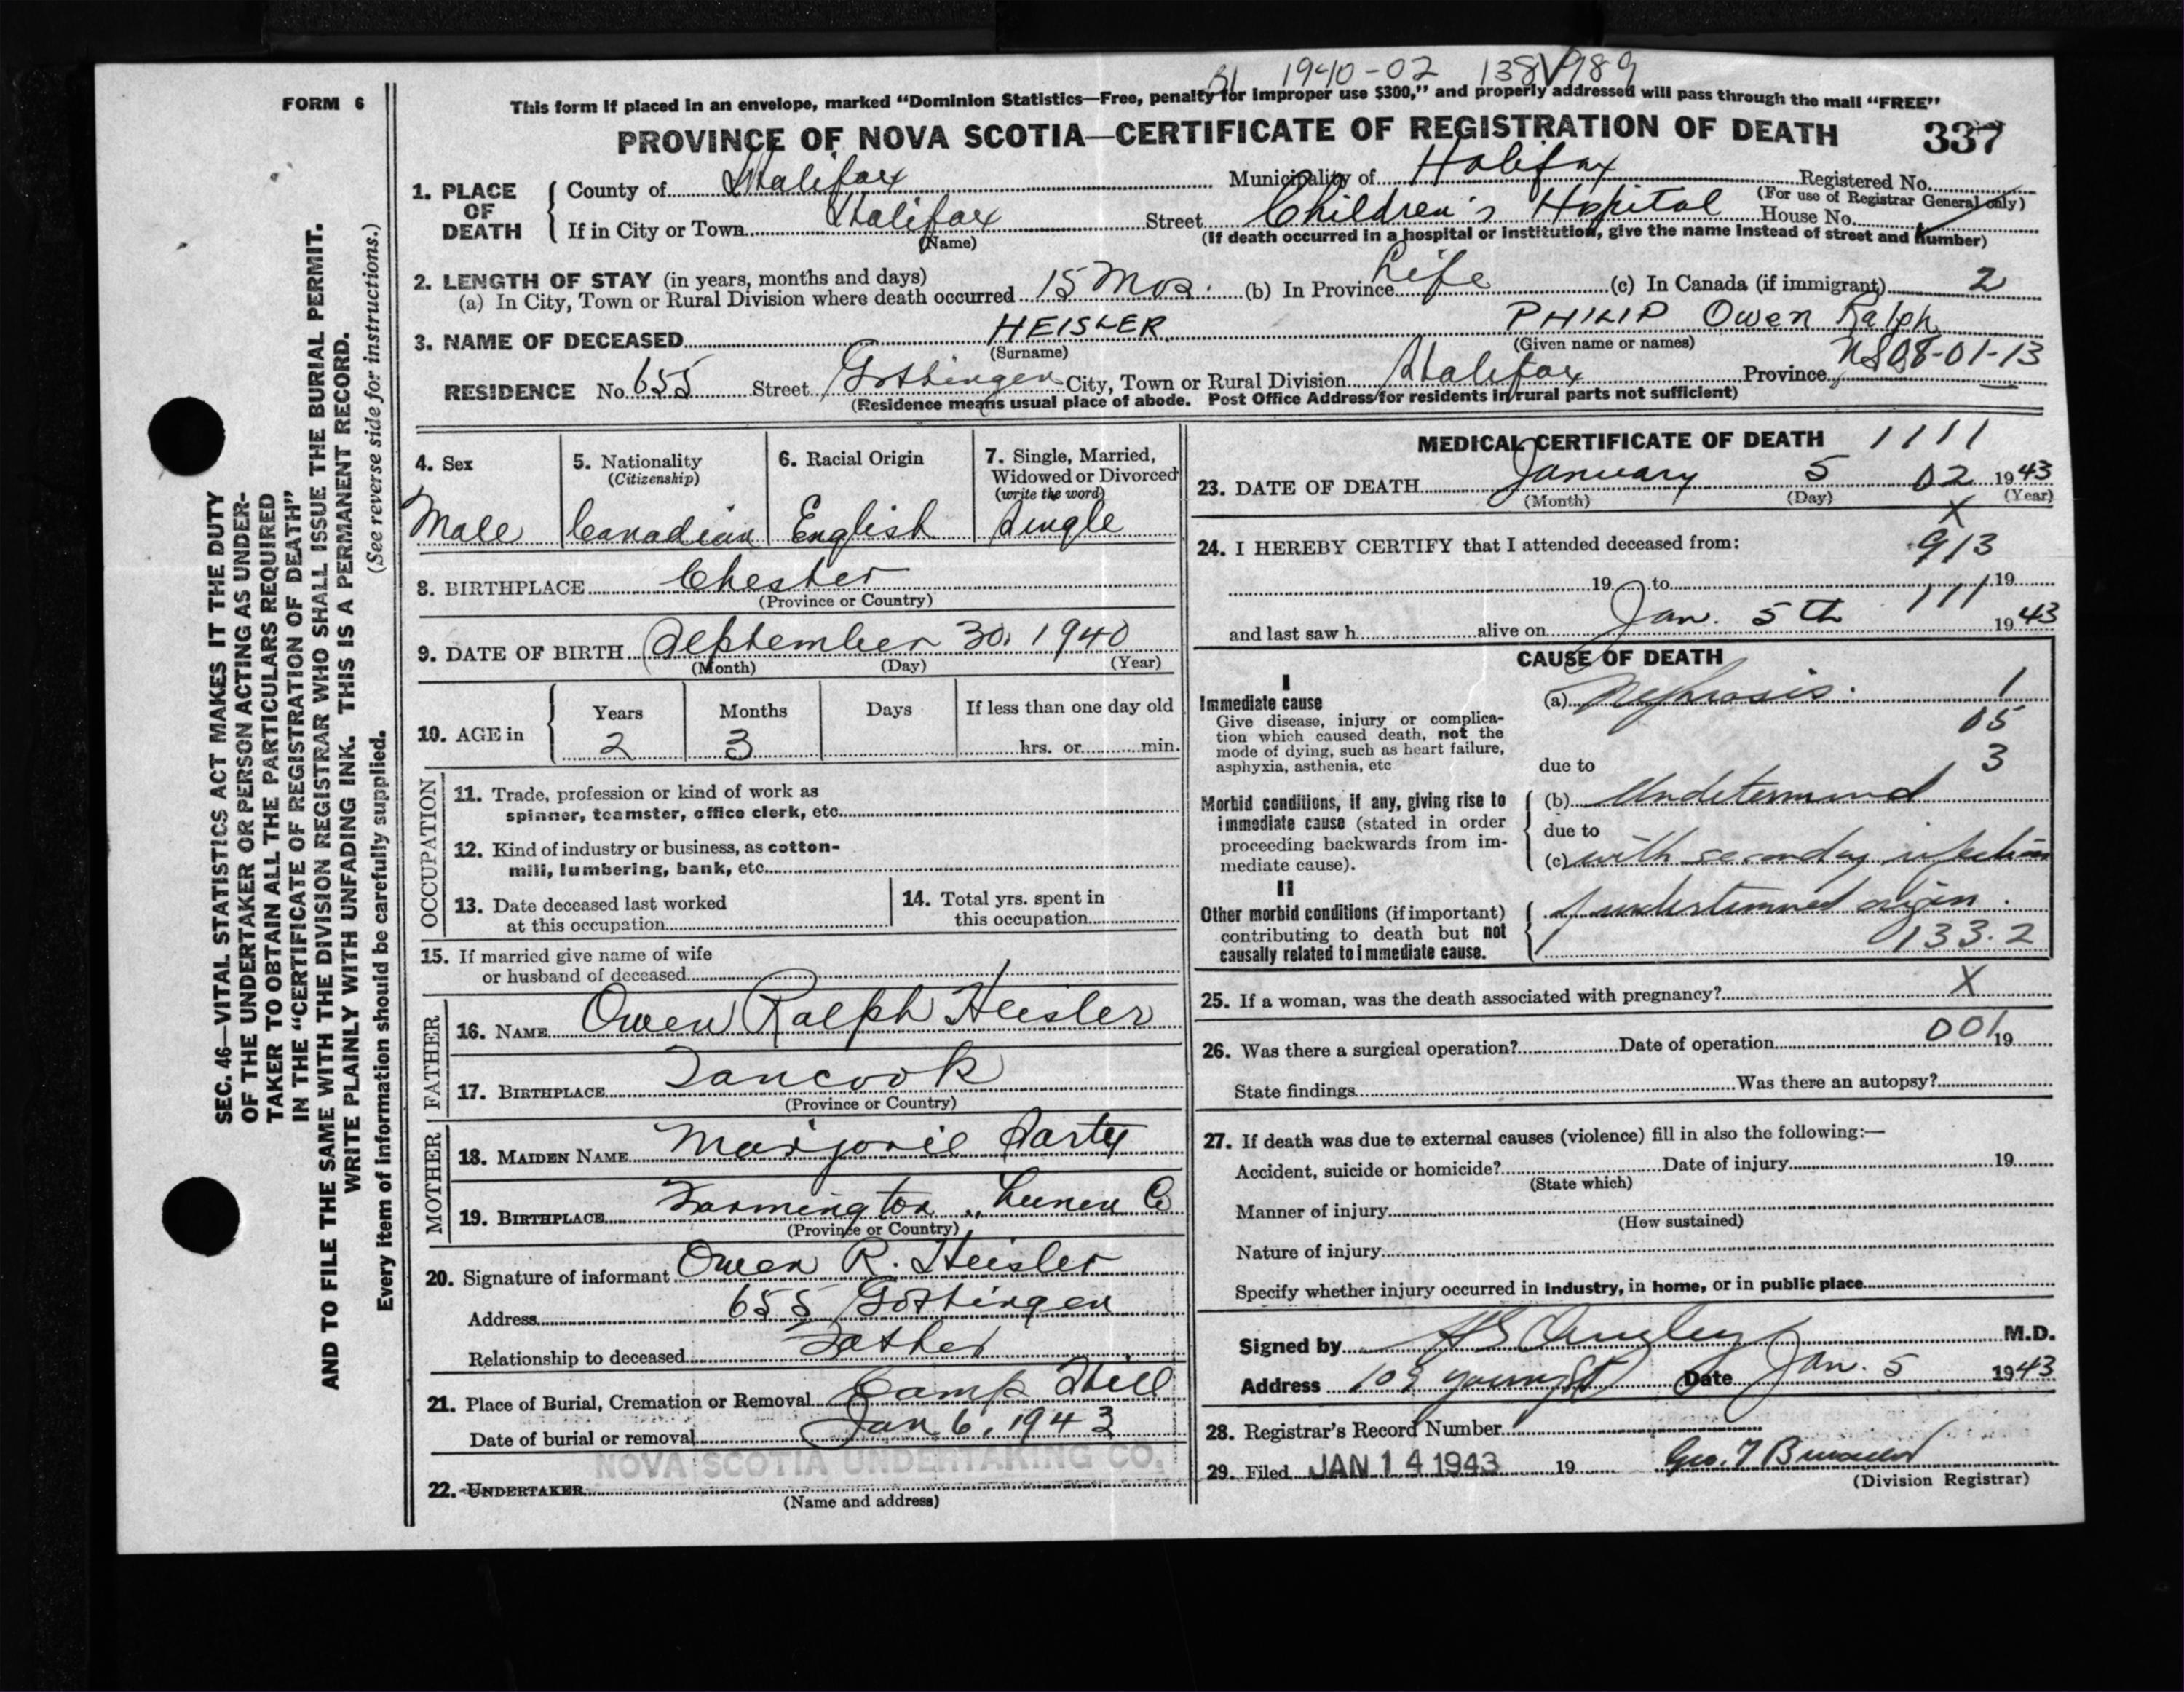 Bl 1940-02 138 989
FORM 6
This form if placed in an envelope, marked "Dominion Statistics—Free, penalty for improper use $300," and properly addressed will pass through the mail "FREE"
PROVINCE OF NOVA SCOTIA—CERTIFICATE OF REGISTRATION OF DEATH 337
1. PLACE OF DEATH
County of Halifax Municipality of Halifax Registered No.
(For use of Registrar General only)
If in City or Town Halifax Street Children's Hospital House No.
(Name) (If death occurred in a hospital or institution, give the name instead of street and number)
2. LENGTH OF STAY (in years, months and days)
(a) In City, Town or Rural Division where death occurred 15 Mos. (b) In Province Life (c) In Canada (if immigrant) 2
3. NAME OF DECEASED HEISLER PHILIP Owen Ralph
(Surname) (Given name or names)
RESIDENCE No. 655 Street Gottingen City, Town or Rural Division Halifax Province NS 08-01-13
(Residence means usual place of abode. Post Office Address for residents in rural parts not sufficient)
4. Sex 5. Nationality (Citizenship) 6. Racial Origin 7. Single, Married, Widowed or Divorced (write the word)
Male Canadian English Single
8. BIRTHPLACE Chester
(Province or Country)
9. DATE OF BIRTH September 30, 1940
(Month) (Day) (Year)
10. AGE in Years Months Days If less than one day old
2 3 hrs. or min.
OCCUPATION
11. Trade, profession or kind of work as
spinner, teamster, office clerk, etc.
12. Kind of industry or business, as cotton-
mill, lumbering, bank, etc.
13. Date deceased last worked
at this occupation
14. Total yrs. spent in
this occupation
15. If married give name of wife
or husband of deceased
FATHER
16. NAME Owen Ralph Heisler
17. BIRTHPLACE Tancook
(Province or Country)
MOTHER
18. MAIDEN NAME Marjorie Sarty
19. BIRTHPLACE Farmington, Lunen Co
(Province or Country)
20. Signature of informant Owen R. Heisler
Address 655 Gottingen
Relationship to deceased Father
21. Place of Burial, Cremation or Removal Camp Hill
Date of burial or removal Jan 6, 1943
NOVA SCOTIA UNDERTAKING CO.
22. UNDERTAKER
(Name and address)
MEDICAL CERTIFICATE OF DEATH 1111
23. DATE OF DEATH January 5 02 1943
(Month) (Day) (Year)
X
24. I HEREBY CERTIFY that I attended deceased from: 913
19 to 111 19
and last saw h alive on Jan. 5th 1943
CAUSE OF DEATH
I
Immediate cause
Give disease, injury or complica-
tion which caused death, not the
mode of dying, such as heart failure,
asphyxia, asthenia, etc
(a) Nephrosis. 1
05
3
due to
Morbid conditions, if any, giving rise to
immediate cause (stated in order
proceeding backwards from im-
mediate cause).
(b) Undetermined
due to
(c) with secondary infection
II
Other morbid conditions (if important)
contributing to death but not
causally related to immediate cause.
of undetermined origin.
133.2
25. If a woman, was the death associated with pregnancy? X
26. Was there a surgical operation? Date of operation 001 19
State findings Was there an autopsy?
27. If death was due to external causes (violence) fill in also the following:—
Accident, suicide or homicide? Date of injury 19
(State which)
Manner of injury
(How sustained)
Nature of injury
Specify whether injury occurred in industry, in home, or in public place
Signed by M.D.
Address Date Jan. 5 1943
28. Registrar's Record Number
29. Filed JAN 14 1943 19
(Division Registrar)
SEC. 46—VITAL STATISTICS ACT MAKES IT THE DUTY
OF THE UNDERTAKER OR PERSON ACTING AS UNDER-
TAKER TO OBTAIN ALL THE PARTICULARS REQUIRED
IN THE "CERTIFICATE OF REGISTRATION OF DEATH"
AND TO FILE THE SAME WITH THE DIVISION REGISTRAR WHO SHALL ISSUE THE BURIAL PERMIT.
WRITE PLAINLY WITH UNFADING INK. THIS IS A PERMANENT RECORD.
(See reverse side for instructions.)
Every item of information should be carefully supplied.